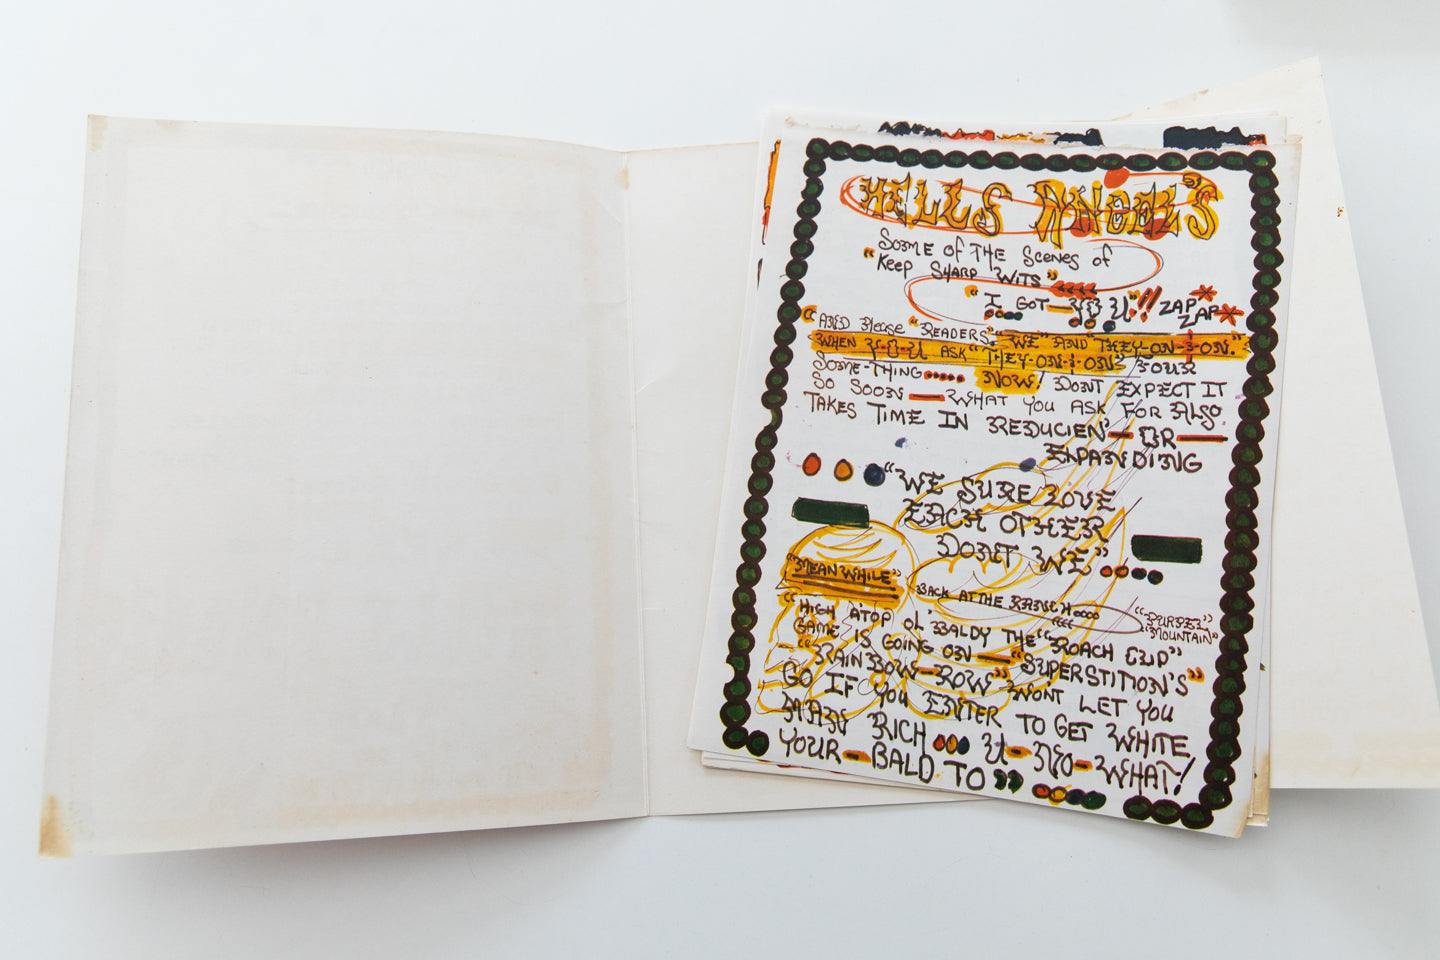 HELLS ANGEL'S
SOME OF THE SCENES of
"KEEP SHARP WITS"
"I GOT—Y O U"!! ZAP
ZAP
"AND Please "READERS" "WE" AND "THEY-ON-I-ON."
WHEN Y-O-U ASK "THEY-ON-I-ON" FOUR
SOME-THING..... NOW! DONT EXPECT IT
SO SOON — WHAT YOU ASK FOR Also
TAKES TIME IN REDUCIEN' — OR —
EXPANDING
"WE SURE LOVE
EACH OTHER
DONT WE"
"MEANWHILE"
BACK AT THE RANCH oooo
"PURPEL"
"MOUNTAIN"
"HIGH A'TOP OL' BALDY THE "ROACH CLIP"
GAME IS GOING ON — "SUPERSTITION'S"
"RAINBOW-ROW" WON'T LET YOU
GO IF YOU ENTER TO GET WHITE
MAN RICH U-NO-WHAT!
YOUR - BALD TO "